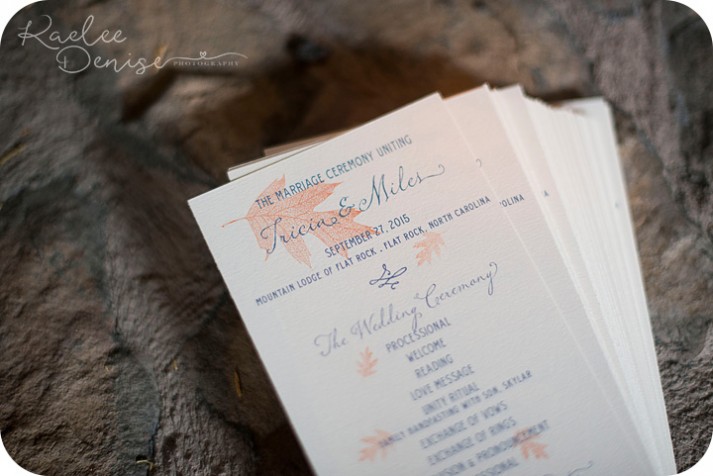 Raelee
Denise
PHOTOGRAPHY
THE MARRIAGE CEREMONY UNITING
Tricia & Miles
SEPTEMBER 27, 2015
MOUNTAIN LODGE OF FLAT ROCK . FLAT ROCK, NORTH CAROLINA
OLINA
The Wedding Ceremony
PROCESSIONAL
WELCOME
READING
LOVE MESSAGE
UNITY RITUAL
FAMILY HANDFASTING WITH SON, SKYLAR
EXCHANGE OF VOWS
EXCHANGE OF RINGS
& PRONOUNCEMENT